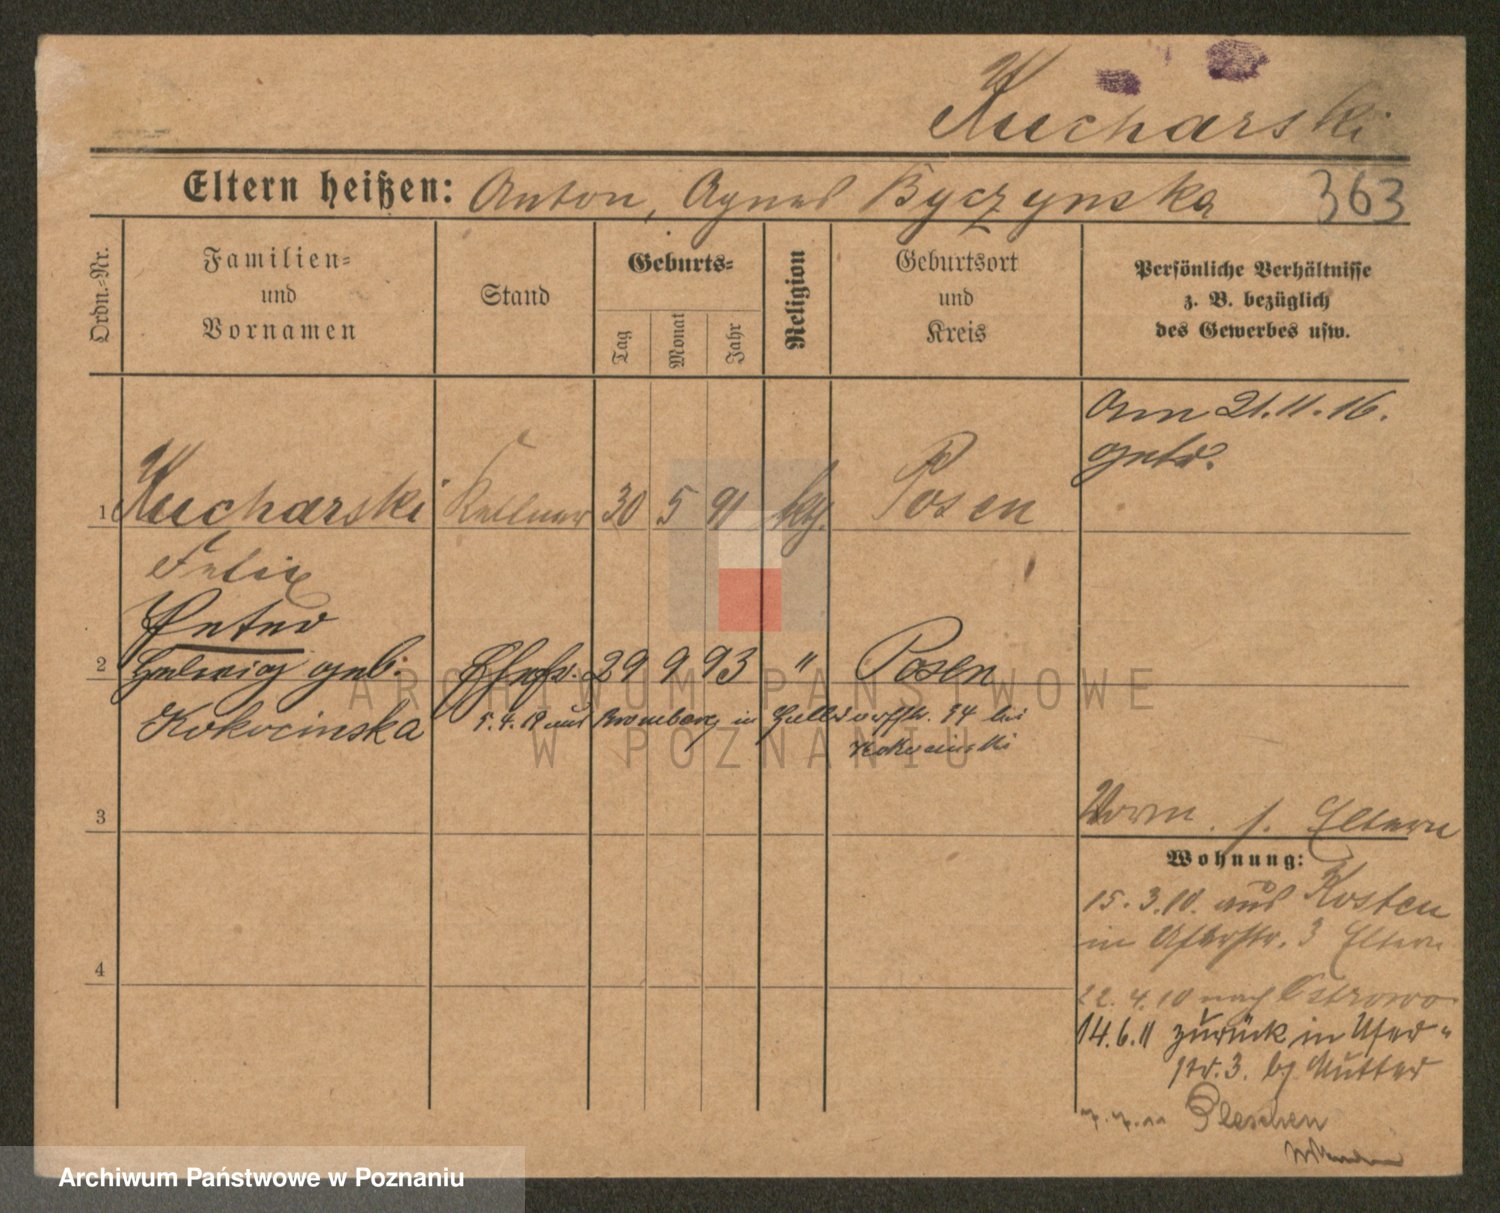 Kucharski
Eltern heißen: Anton, Agnes Byczynska 363
Ordn.-Nr.
Familien-
und
Vornamen
Stand
Geburts-
Tag
Monat
Jahr
Religion
Geburtsort
und
Kreis
Persönliche Verhältnisse
z. B. bezüglich
des Gewerbes usw.
Am 21.11.16.
getr.
1 Kucharski Kellner 30 5 91 kth. Posen
Felix
Peter
2 Hedwig geb. Ehefr. 29 9 93 " Posen
Kokocinska 5.4.19 aus Bromberg in 34 bei
Kokocinski
3
Vorm. s. Eltern
Wohnung:
15.3.10. aus Kosten
in Uferstr. 3 Eltern
4
22.4.10 nach Ostrowo
14.6.11 zurück in Ufer-
str. 3. b/ Mutter
Pleschen
ARCHIWUM PAŃSTWOWE
W POZNANIU
Archiwum Państwowe w Poznaniu